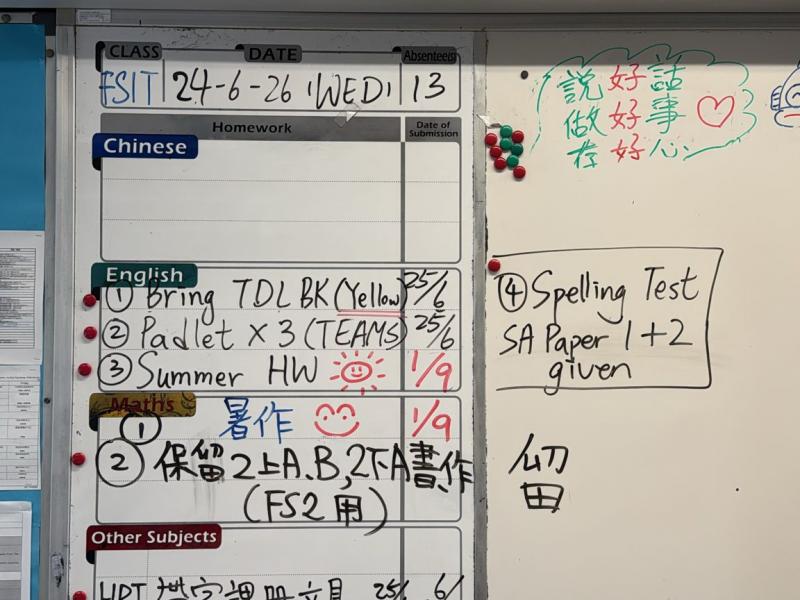 CLASS DATE Absentees
FSIT 24-6-26 (WED) 13
Homework Date of Submission
Chinese
English
① Bring TDL BK (Yellow) 25/6
② Padlet x 3 (TEAMS) 25/6
③ Summer HW 1/9
Maths
① 暑作 1/9
② 保留2上A、B,2下A書、作
(FS2用)
Other Subjects
25/6
說好話
做好事
存好心
④ Spelling Test
SA Paper 1+2
given
留